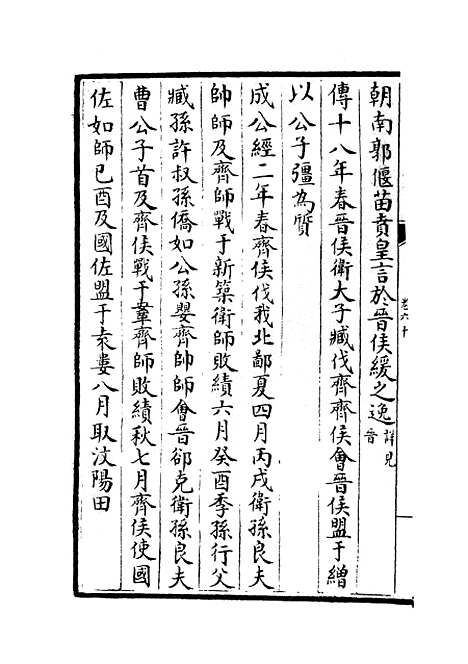 朝南郭偃苗賁皇言於晉侯緩之逸詳見晉
傳十八年春晉侯衛大子臧伐齊齊侯會晉侯盟于繒
以公子彊為質
成公經二年春齊侯伐我北鄙夏四月丙戌衛孫良夫
帥師及齊師戰于新築衛師敗績六月癸酉季孫行父
臧孫許叔孫僑如公孫嬰齊帥師會晉郤克衛孫良夫
曹公子首及齊侯戰于鞌齊師敗績秋七月齊侯使國
佐如師己酉及國佐盟于袁婁八月取汶陽田
卷六十